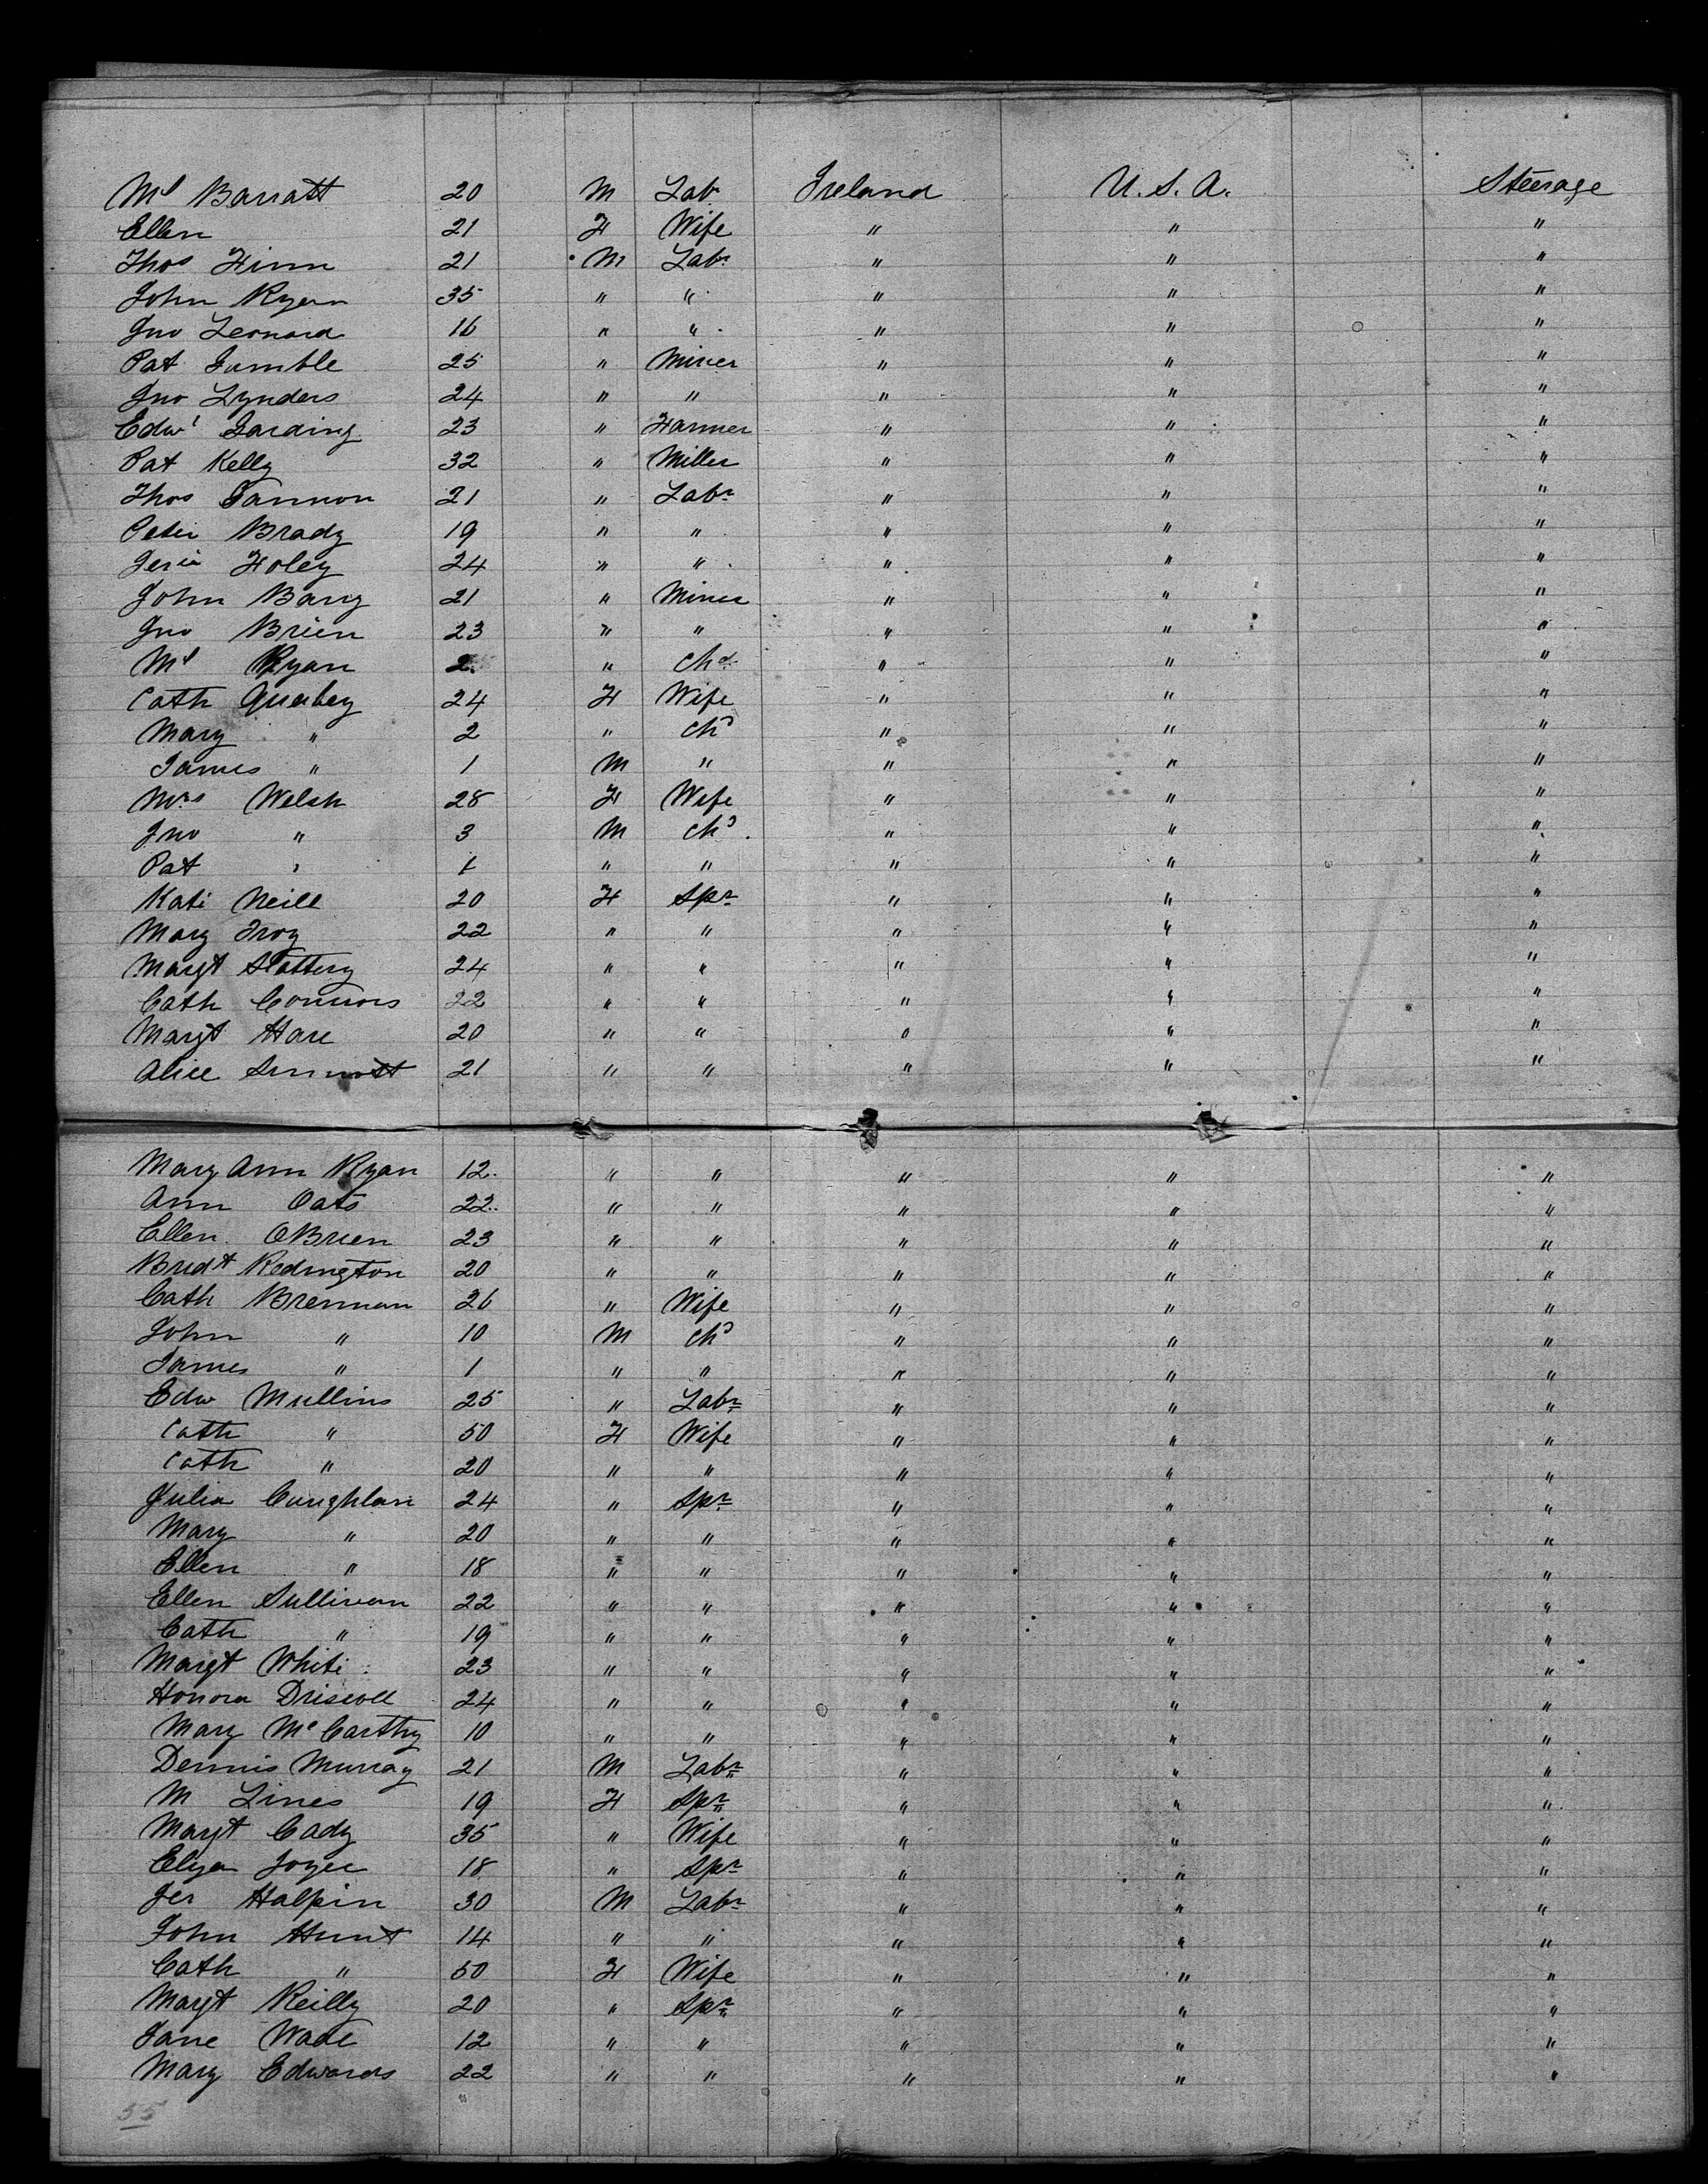 Ml Barratt 20 M Labr Ireland U.S.A. Steerage
Ellen 21 F Wife " " "
Thos Finn 21 M Labr " " "
John Ryan 35 " " " " "
Jno Leonard 16 " " " " "
Pat Gamble 25 " Miner " " "
Jno Lynders 24 " " " " "
Edwd Harding 23 " Farmer " " "
Pat Kelly 32 " Miller " " "
Thos Gannon 21 " Labr " " "
Peter Brady 19 " " " " "
Jeria Foley 24 " " " " "
John Barry 21 " Miner " " "
Jno Brien 23 " " " " "
Ml Ryan 2 " Chd " " "
Cath 24 F Wife " " "
Mary " 2 " Chd " " "
James " 1 M " " " "
Mrs Welsh 28 F Wife " " "
Jno " 3 M Chd " " "
Pat " 1 " " " " "
Kate Neill 20 F Spr " " "
Mary Troy 22 " " " " "
Margt Slattery 24 " " " " "
Cath Connors 22 " " " " "
Margt Hare 20 " " " " "
Alice Sinnott 21 " " " " "
Mary Ann Ryan 12 " " " " "
Ann Oats 22 " " " " "
Ellen OBrien 23 " " " " "
Bridt Redington 20 " " " " "
Cath Brennan 26 " Wife " " "
John " 10 M Chd " " "
James " 1 " " " " "
Edw Mullins 25 " Labr " " "
Cath " 50 F Wife " " "
Cath " 20 " " " " "
Julia Coughlan 24 " Spr " " "
Mary " 20 " " " " "
Ellen " 18 " " " " "
Ellen Sullivan 22 " " " " "
Cath " 19 " " " " "
Margt White 23 " " " " "
Honora Driscoll 24 " " " " "
Mary McCarthy 10 " " " " "
Dennis Murray 21 M Labr " " "
M Lines 19 F Spr " " "
Margt Cady 35 " Wife " " "
Eliza Joyce 18 " Spr " " "
Jer Halpin 30 M Labr " " "
John Hunt 14 " " " " "
Cath " 50 F Wife " " "
Margt Reilly 20 " Spr " " "
Jane Wade 12 " " " " "
Mary Edwards 22 " " " " "
55